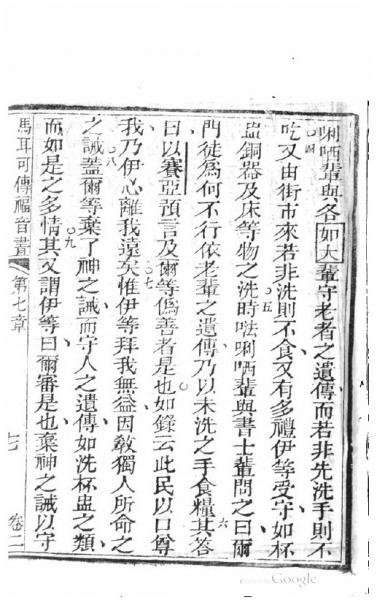 唎哂輩與各如大輩守老者之遺傳而若非先洗手則不
吃四又由街市來若非洗則不食又有多禮伊等受守如杯
盅銅器及床等物之洗五時㕸唎哂輩與書士輩問之曰爾
門徒為何不行依老輩之遺傳乃以未洗之手食糧六其答
曰以賽亞預言及爾等偽善者是也如錄云此民以口尊
我乃伊心離我遠矣七惟伊等拜我無益因教獨人所命之
之誡八蓋爾等棄了神之誡而守人之遺傳如洗杯盅之類
而如是之多情九其又謂伊等曰爾審是也棄神之誡以守
馬耳可傳福音書 第七章 七 卷二
Google